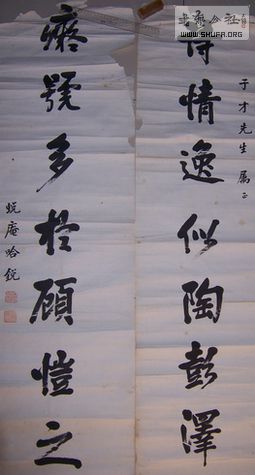 書藝公社
WWW.SHUFA.ORG
子才先生屬正
詩情逸似陶彭澤
癡號多於顧愷之
蜕庵哈銳